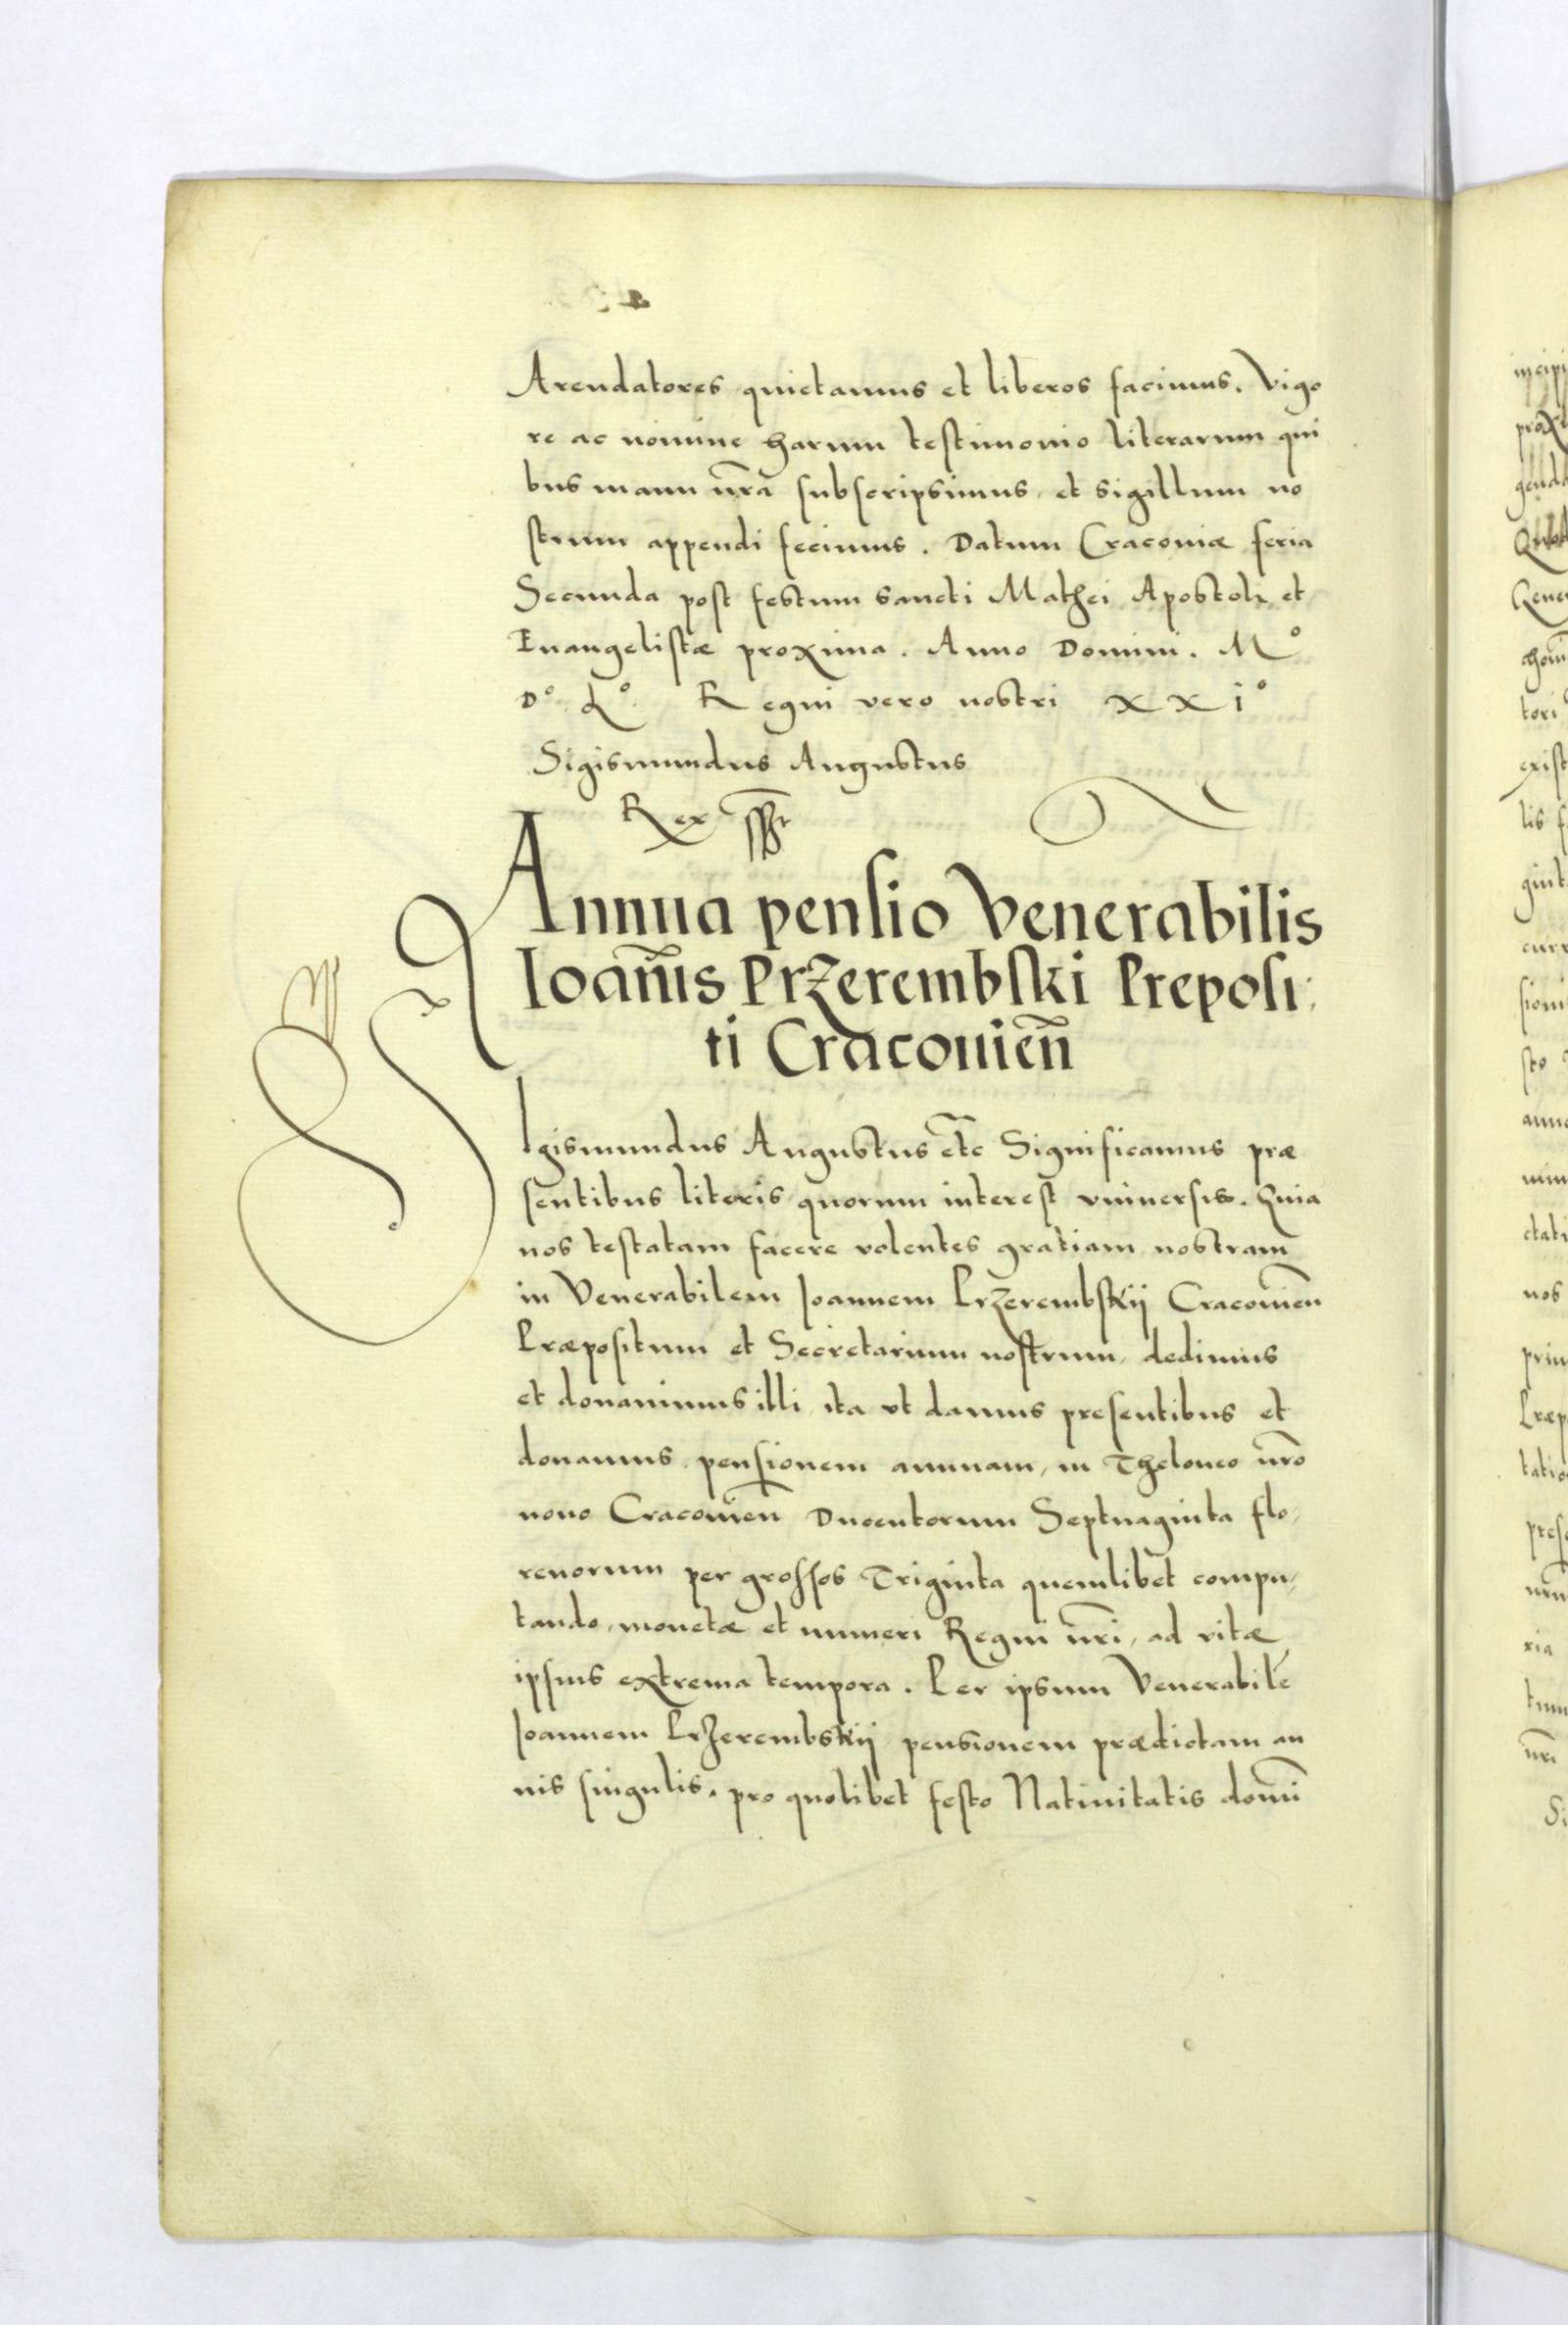 Arendatores quietamus et liberos facimus. Vigo
re ac nomine harum testimonio literarum qui
bus manu nr̃a subscripsimus, et sigillum no
strum appendi fecimus. Datum Cracouiæ feria
Secunda post festum sancti Mathei Apostoli et
Euangelistæ proxima. Anno Domini. M°
D° L° Regni vero nostri XXI°
Sigismundus Augustus
Rex
Annua pensio Venerabilis
Ioañis Przerembski Preposi:
ti Cracouieñ
SIgismundus Augustus etc̃ Significamus præ
sentibus literis quorum interest vniuersis. Quia
nos testatam facere volentes gratiam nostram
in Venerabilem Joannem Przerembskij Cracouien̄
Præpositum et Secretarium nostrum, dedimus
et donauimus illi, ita vt damus presentibus et
donamus, pensionem annuam, in Theloneo nr̃o
nouo Cracouien̄ Ducentorum Septuaginta flo,
renorum per grossos Triginta quemlibet compu,
tando, monetæ et numeri Regni nr̃i, ad vitæ
ipsius extrema tempora. Per ipsum Venerabilē
Joannem Przerembskij pensionem prædictam an
nis singulis, pro quolibet festo Natiuitatis domī